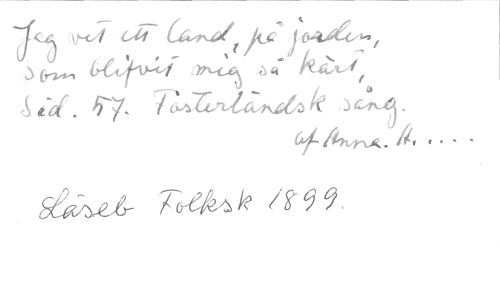 Jag vet ett land, på jorden,
som blifvit mig så kärt,
Sid. 57. Fosterländsk sång.
af Anna. A. . . . .
Läseb Folksk 1899.